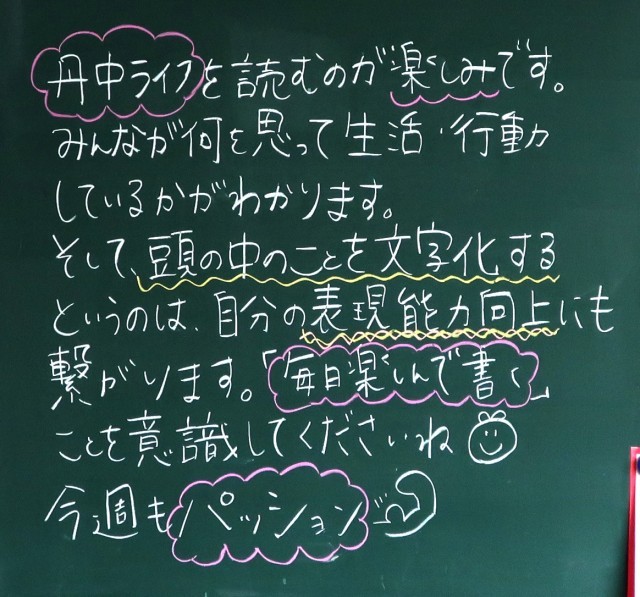 丹中ライフを読むのが楽しみです。
みんなが何を思って生活・行動
しているかがわかります。
そして、頭の中のことを文字化する
というのは、自分の表現能力向上にも
繋がります。「毎日楽しんで書く」
ことを意識してくださいね
今週もパッションで